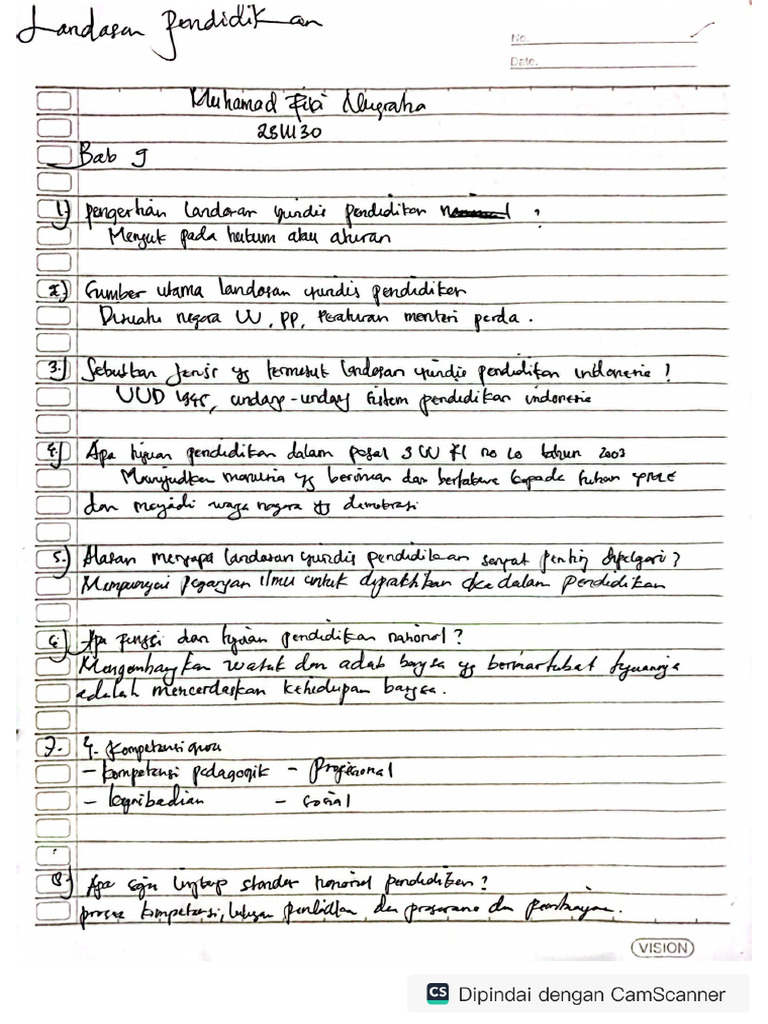 Landasan Pendidikan
No.
Date.
Muhamad Fiki Nugraha
Bab 9
1.) pengertian landasan yuridis pendidikan ?
Merujuk pada hukum atau aturan
2.) Sumber utama landasan yuridis pendidikan
negara UU, PP, Peraturan menteri perda.
3.) Sebutkan jenis yg termasuk landasan yuridis pendidikan indonesia !
UUD 1945, undang-undang sistem pendidikan indonesia
4.) Apa tujuan pendidikan dalam pasal 3 UU RI no 20 tahun 2003
Mewujudkan manusia yg beriman dan bertakwa kepada tuhan YME
dan menjadi warga negara yg demokrasi
5.) Alasan mengapa landasan yuridis pendidikan sangat penting dipelajari ?
Mempunyai pegangan ilmu untuk dipraktikan dalam pendidikan
6.) Apa fungsi dan tujuan pendidikan nasional ?
Mengembangkan watak dan adab bangsa yg bermartabat tujuannya
adalah mencerdaskan kehidupan bangsa.
7. 4. Kompetensi guru
- kompetensi pedagogik - Profesional
- kepribadian - sosial
8.) Apa saja lingkup standar nasional pendidikan ?
proses kompetensi, lulusan penilaian dan prasarana dan pembiayaan.
VISION
CS Dipindai dengan CamScanner